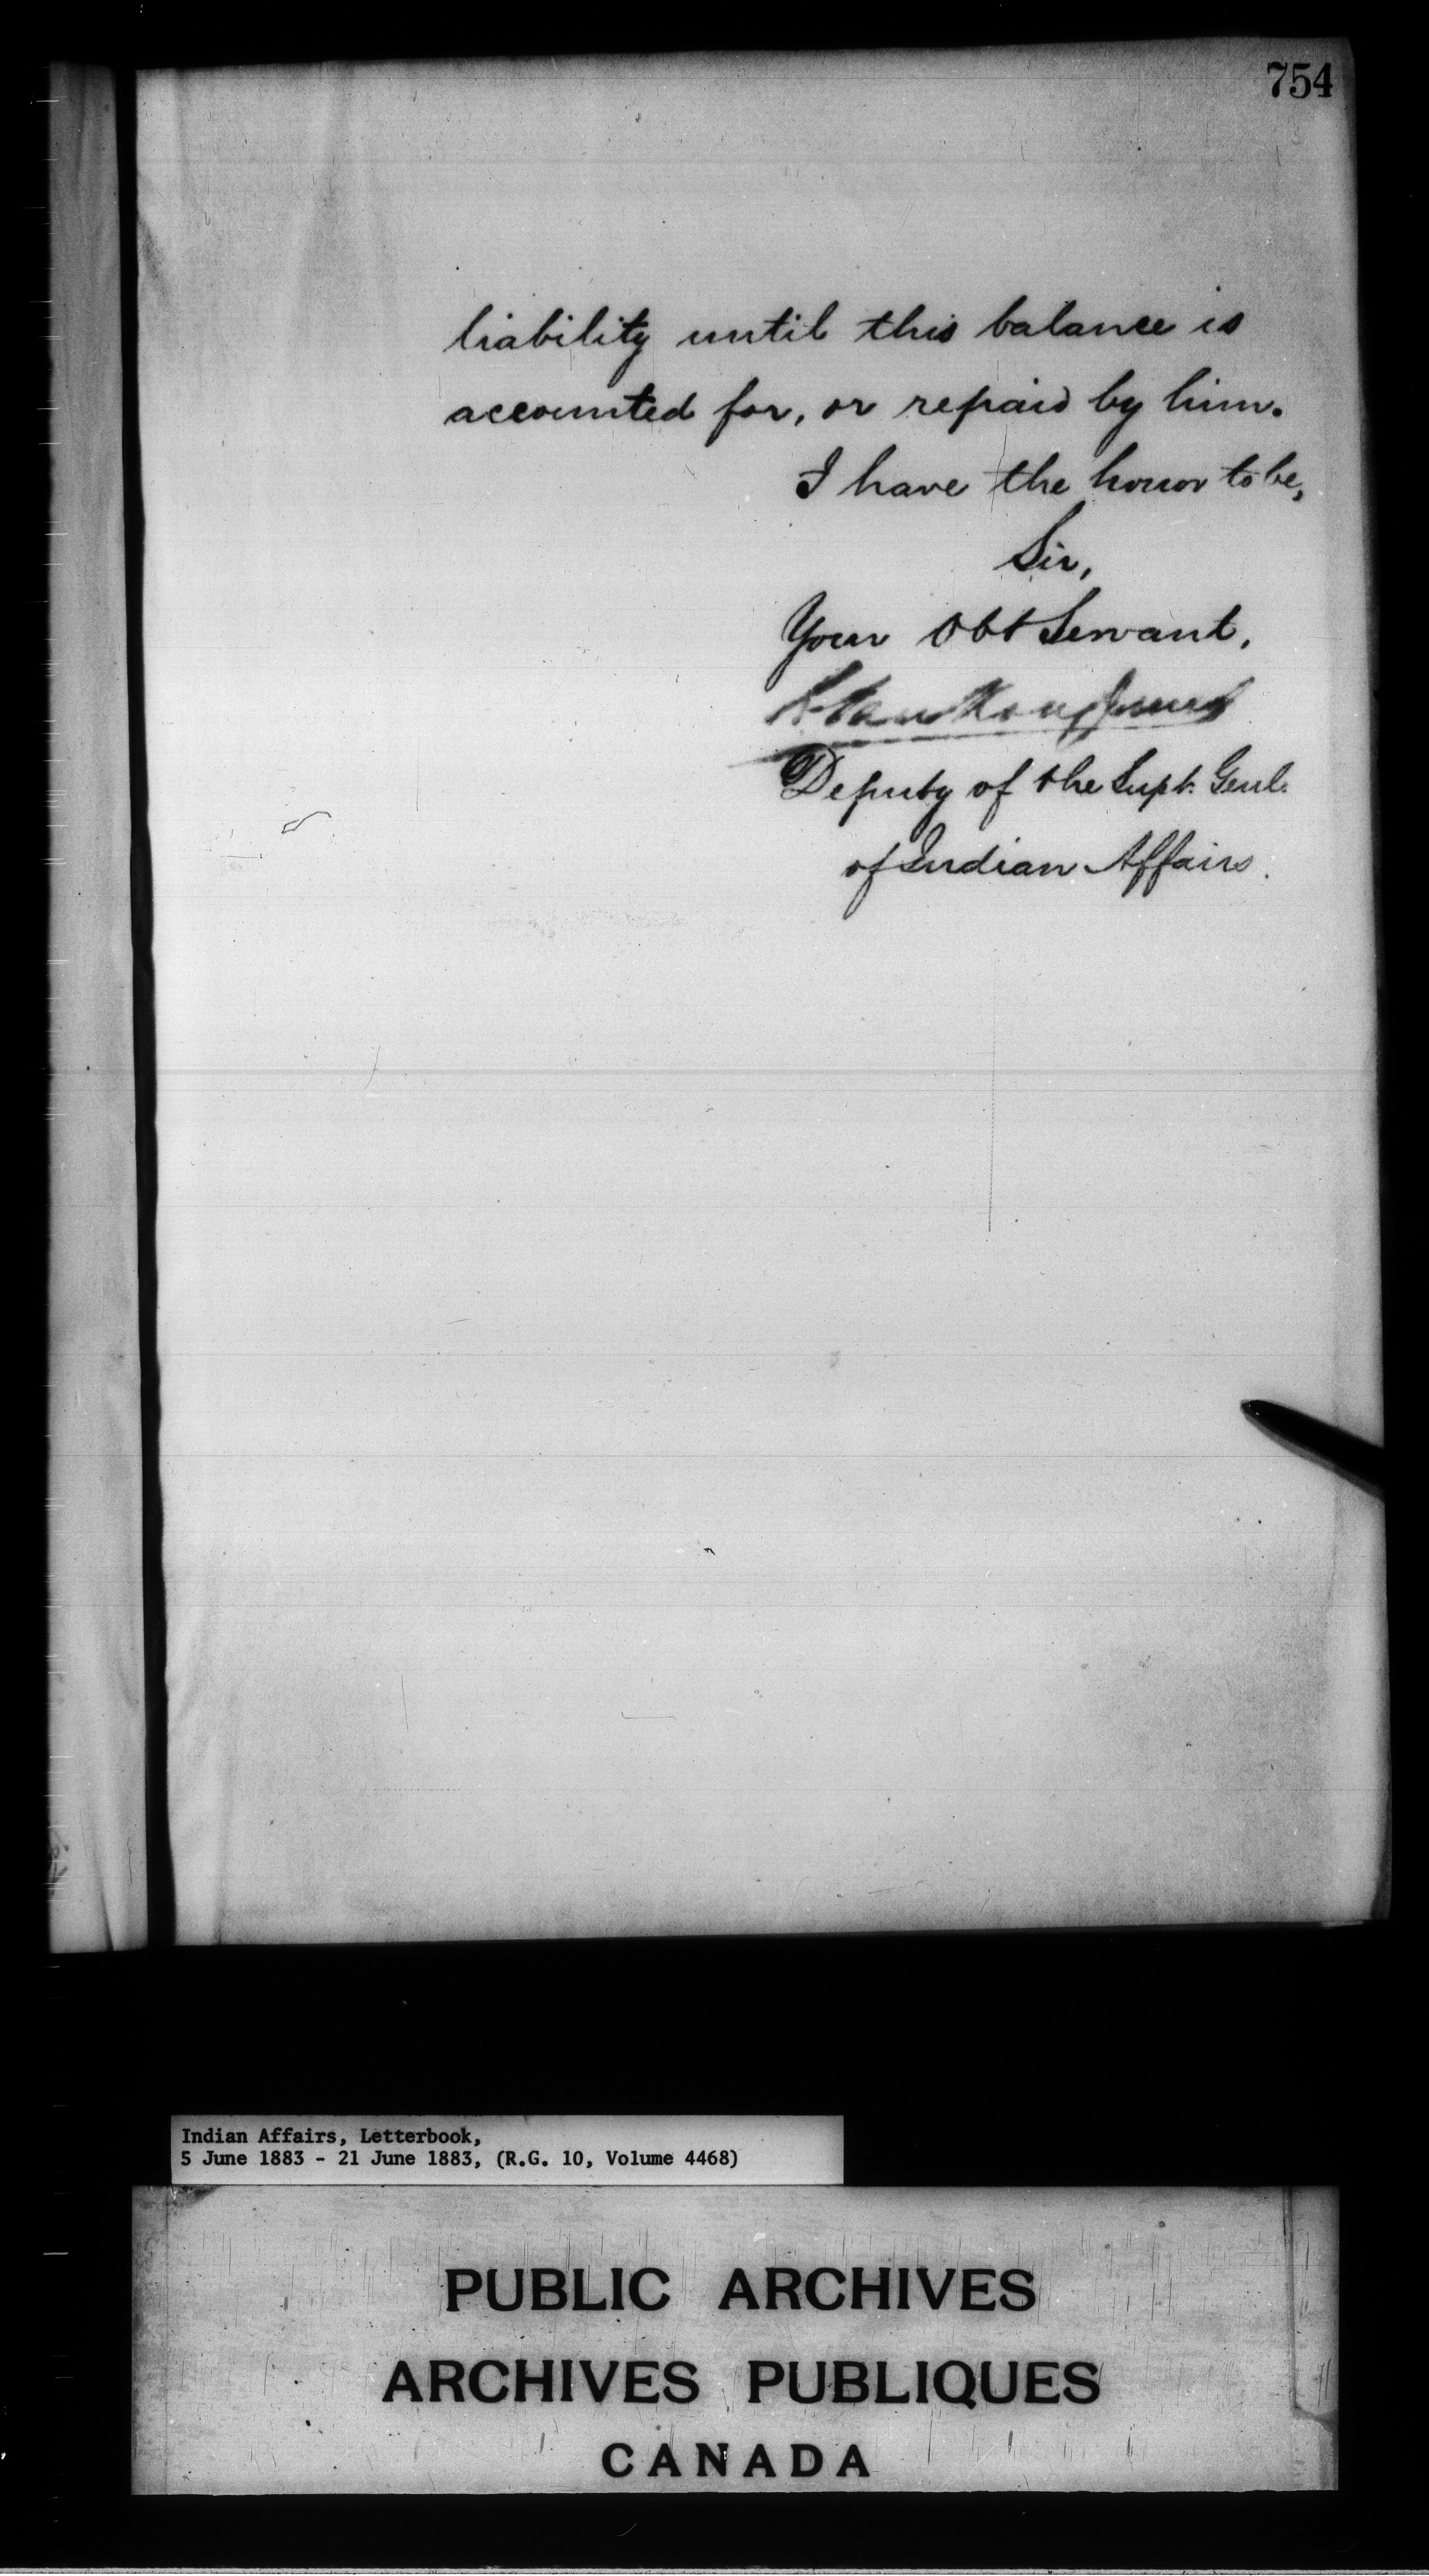 754
liability until this balance is
accounted for, or repaid by him.
I have the honor to be,
Sir,
Your Obt Servant,
Deputy of the Supt. Genl.
of Indian Affairs.
Indian Affairs, Letterbook,
5 June 1883 - 21 June 1883, (R.G. 10, Volume 4468)
PUBLIC ARCHIVES
ARCHIVES PUBLIQUES
CANADA